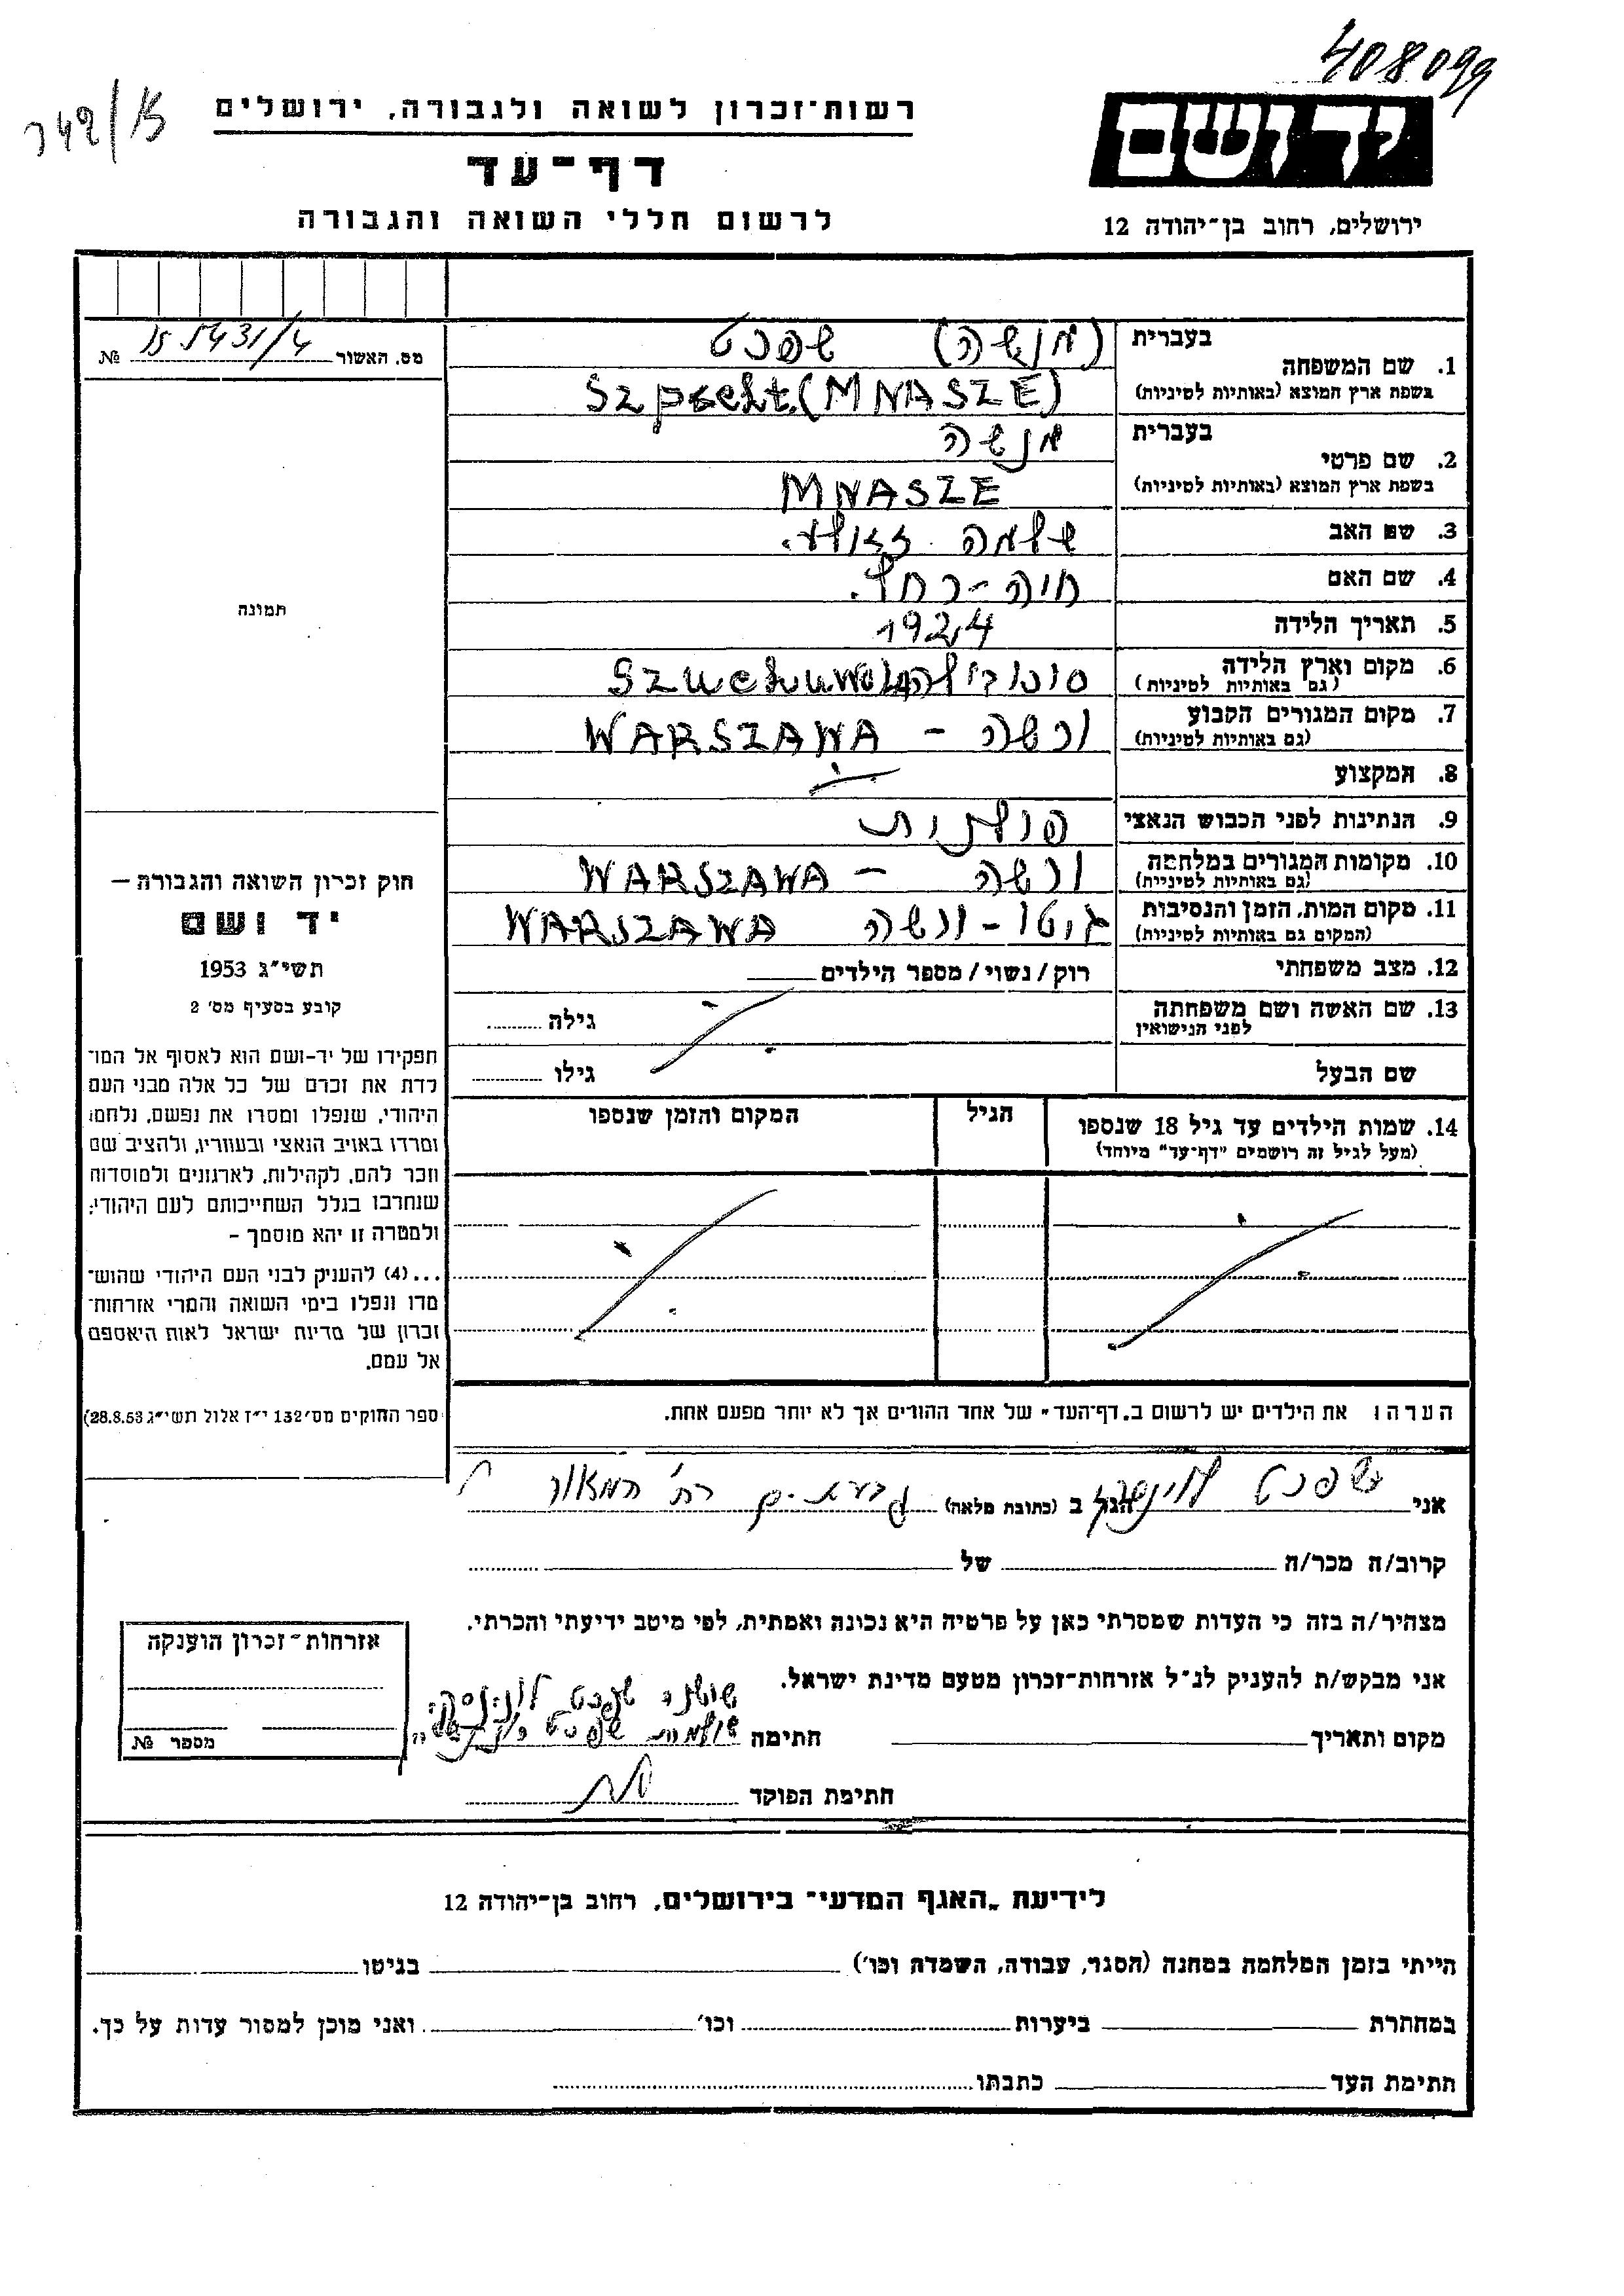 408099
742/ל
רשות־זכרון לשואה ולגבורה, ירושלים
יד ושם
דף־עד
לרשום חללי השואה והגבורה
ירושלים, רחוב בן־יהודה 12
מס. האשור № 5431/4
1. שם המשפחה בעברית (מנשה) שפכט
בשפת ארץ המוצא (באותיות לטיניות) Szpecht.(MNASZE)
2. שם פרטי בעברית מנשה
בשפת ארץ המוצא (באותיות לטיניות) MNASZE
3. שם האב שלמה
4. שם האם חיה-רחל.
5. תאריך הלידה 1924
6. מקום וארץ הלידה
(גם באותיות לטיניות)
7. מקום המגורים הקבוע ורשה - WARSZAWA
(גם באותיות לטיניות)
8. המקצוע
9. הנתינות לפני הכבוש הנאצי פולנית
10. מקומות המגורים במלחמה ורשה - WARSZAWA
(גם באותיות לטיניית)
11. מקום המות, הזמן והנסיבות גיטו - ורשה WARSZAWA
(המקום גם באותיות לטיניות)
12. מצב משפחתי רוק/נשוי/מספר הילדים
13. שם האשה ושם משפחתה גילה
לפני הנישואין
שם הבעל גילו
14. שמות הילדים עד גיל 18 שנספו הגיל המקום והזמן שנספו
(מעל לגיל זה רושמים "דף־עד" מיוחד)
הערה: את הילדים יש לרשום ב„דף־העד" של אחד ההורים אך לא יותר מפעם אחת.
תמונה
חוק זכרון השואה והגבורה —
יד ושם
תשי״ג 1953
קובע בסעיף מס׳ 2
תפקידו של יד-ושם הוא לאסוף אל המו־
לדת את זכרם של כל אלה מבני העם
היהודי, שנפלו ומסרו את נפשם, נלחמו
ומרדו באויב הנאצי ובעוזריו, ולהציב שם
וזכר להם, לקהילות, לארגונים ולמוסדות
שנחרבו בגלל השתייכותם לעם היהודי;
ולמטרה זו יהא מוסמך -
...(4) להעניק לבני העם היהודי שהוש־
מדו ונפלו בימי השואה והמרי אזרחות־
זכרון של מדינת ישראל לאות היאספם
אל עמם.
(ספר החוקים מס׳ 132 י״ז אלול תשי״ג 28.8.53)
אני שפכט הגר ב (כתובת מלאה) גבעתים רח׳ המאור 7
קרוב/ה מכר/ה של
מצהיר/ה בזה כי העדות שמסרתי כאן על פרטיה היא נכונה ואמתית, לפי מיטב ידיעתי והכרתי.
אני מבקש/ת להעניק לנ״ל אזרחות־זכרון מטעם מדינת ישראל.
מקום ותאריך חתימה שולמית שפכט
חתימת הפוקד
אזרחות־זכרון הוענקה
מספר №
לידיעת „האגף המדעי" בירושלים, רחוב בן־יהודה 12
הייתי בזמן המלחמה במחנה (הסגר, עבודה, השמדה וכו׳) בגיטו
במחתרת ביערות וכו׳ ואני מוכן למסור עדות על כך.
חתימת העד כתבתו